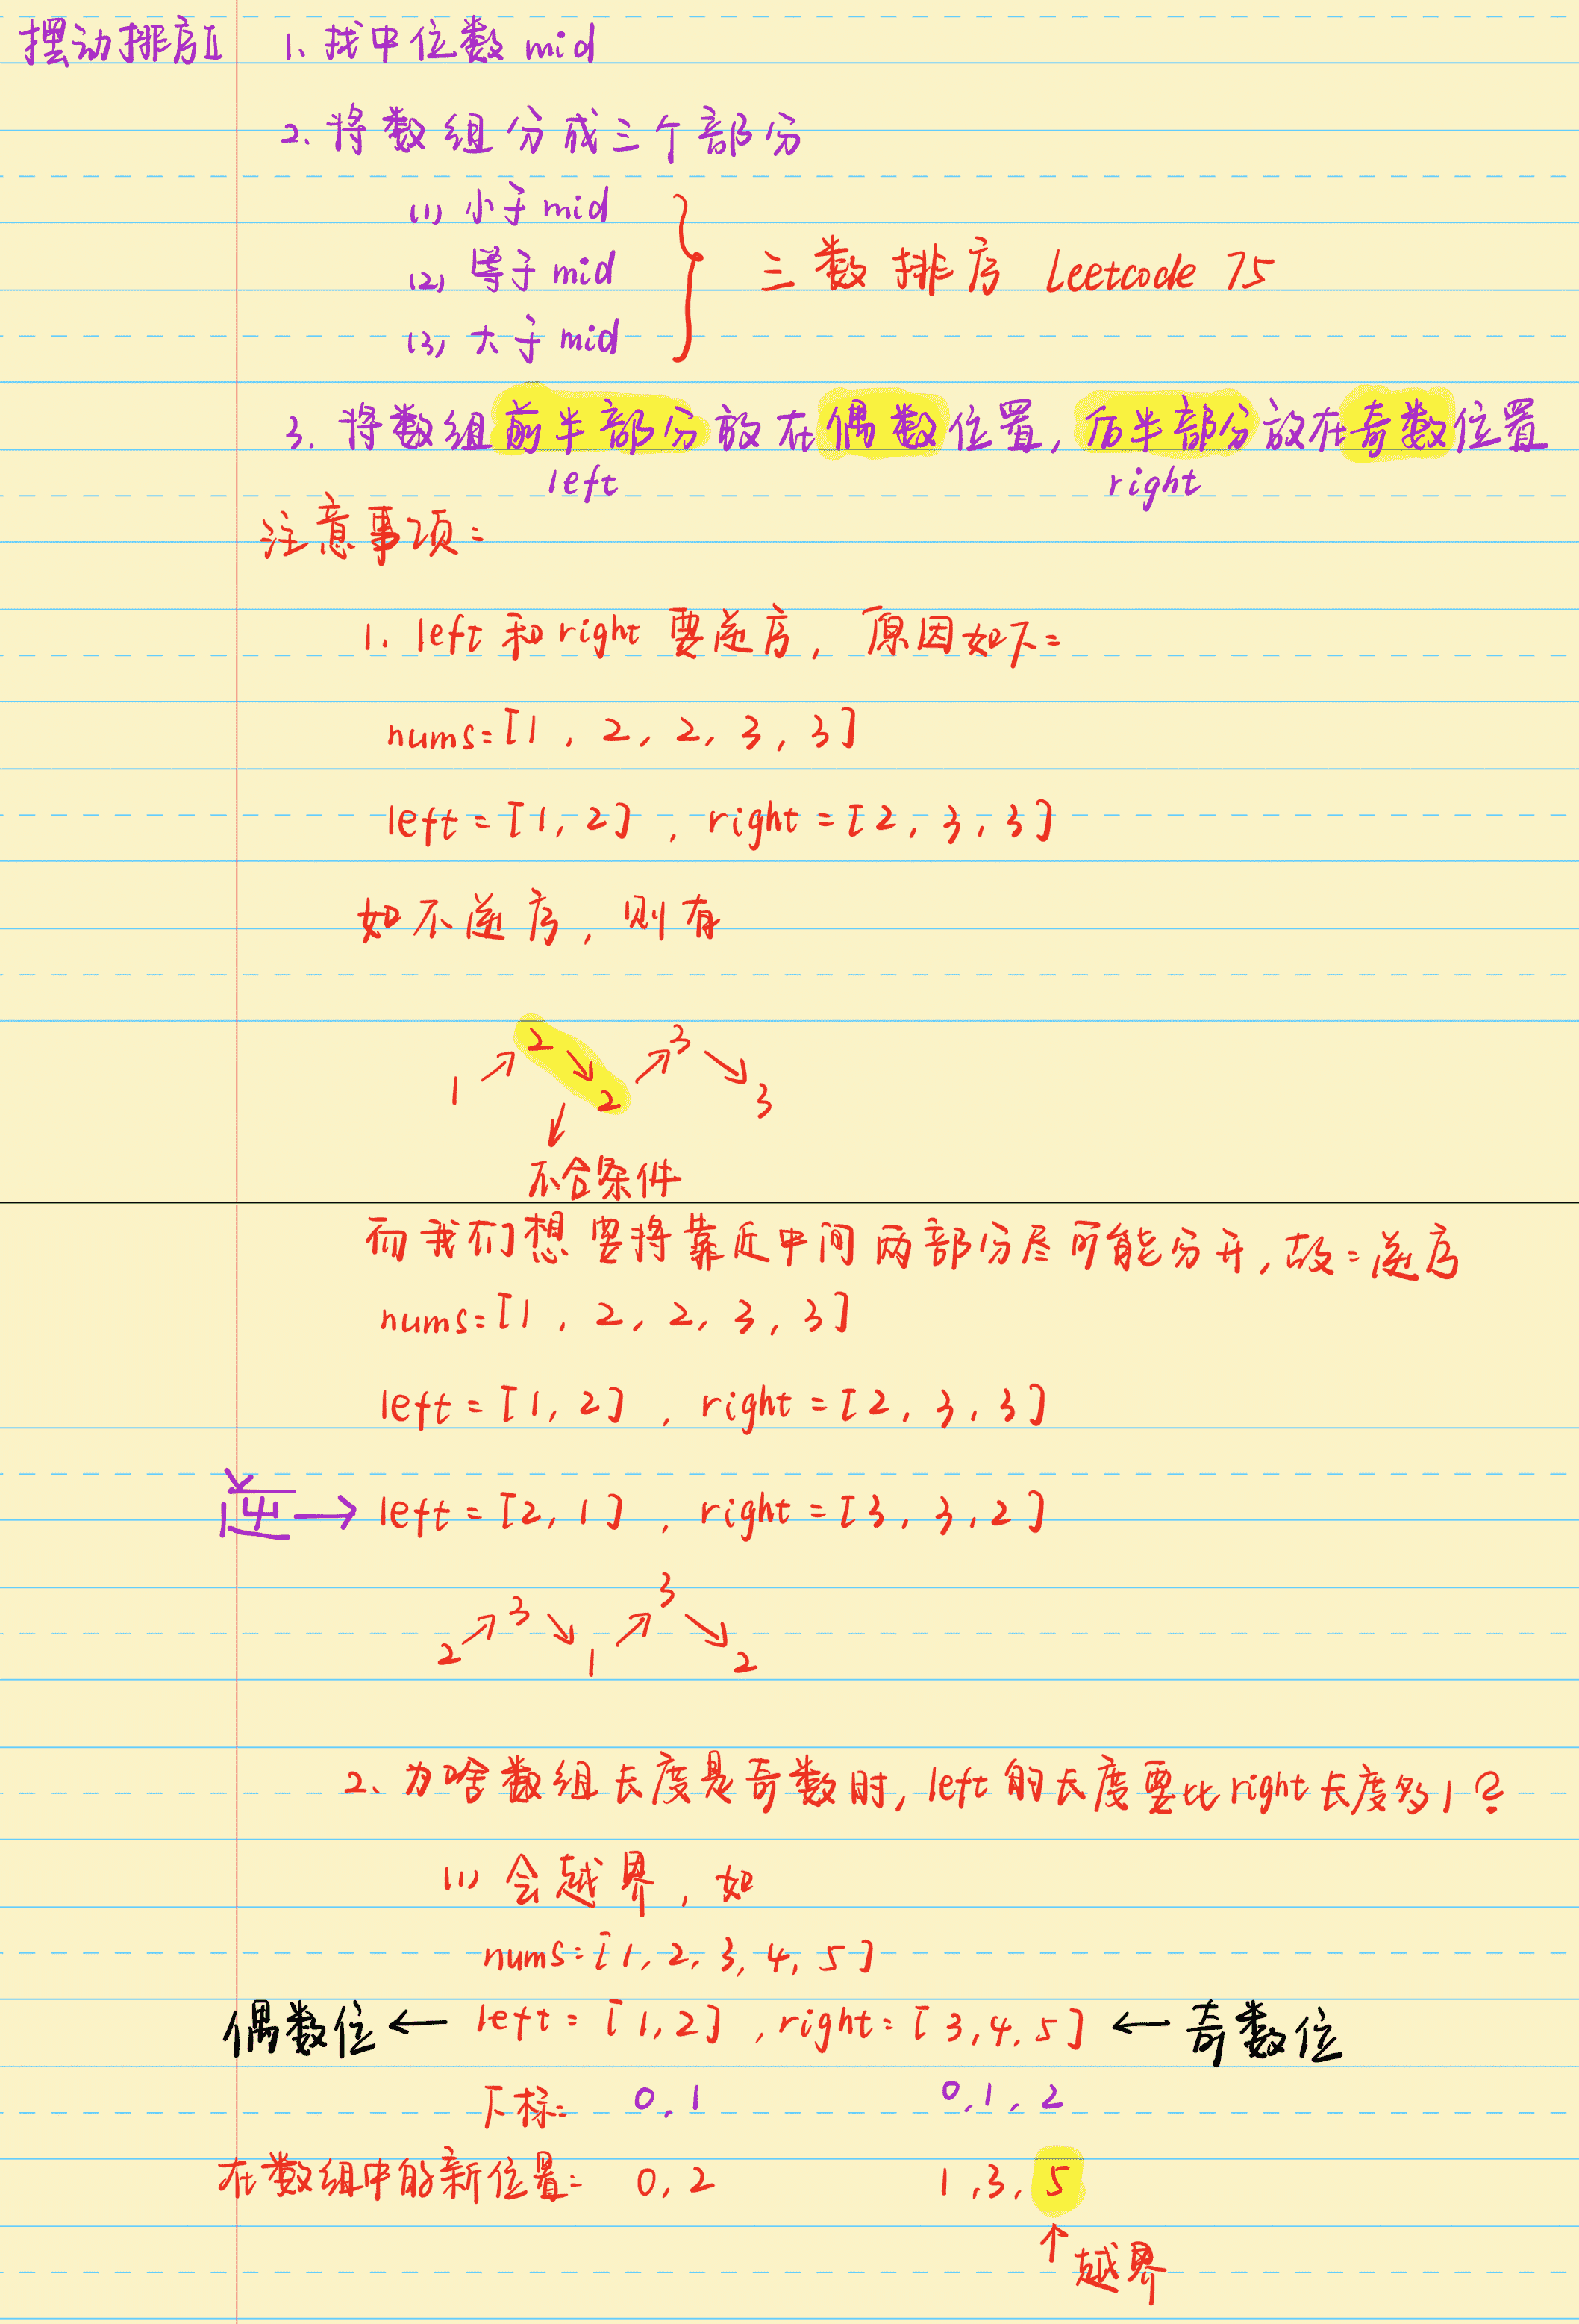 摆动排序II 1. 找中位数 mid
2. 将数组分成三个部分
(1) 小于 mid
(2) 等于 mid
(3) 大于 mid
三数排序 Leetcode 75
3. 将数组前半部分放在偶数位置, 后半部分放在奇数位置
left right
注意事项:
1. left 和 right 要逆序, 原因如下:
nums=[1, 2, 2, 3, 3]
left = [1, 2], right = [2, 3, 3]
如不逆序, 则有
1 ↗ 2 ↘ 2 ↗ 3 ↘ 3
↓
不合条件
而我们想要将靠近中间两部分尽可能分开, 故: 逆序
nums=[1, 2, 2, 3, 3]
left = [1, 2], right = [2, 3, 3]
逆 → left = [2, 1], right = [3, 3, 2]
2 ↗ 3 ↘ 1 ↗ 3 ↘ 2
2. 为啥数组长度是奇数时, left 的长度要比 right 长度多 1?
(1) 会越界, 如
nums=[1, 2, 3, 4, 5]
偶数位 ← left = [1, 2], right = [3, 4, 5] ← 奇数位
下标: 0, 1 0, 1, 2
在数组中的新位置: 0, 2 1, 3, 5
↑ 越界